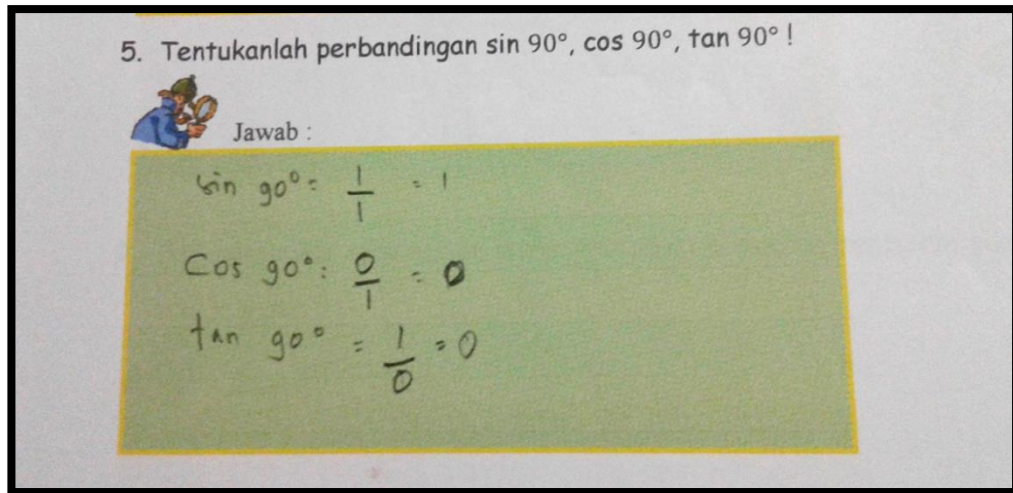 5. Tentukanlah perbandingan sin 90°, cos 90°, tan 90° !
Jawab :
sin 90° = 1/1 = 1
Cos 90° = 0/1 = 0
tan 90° = 1/0 = 0